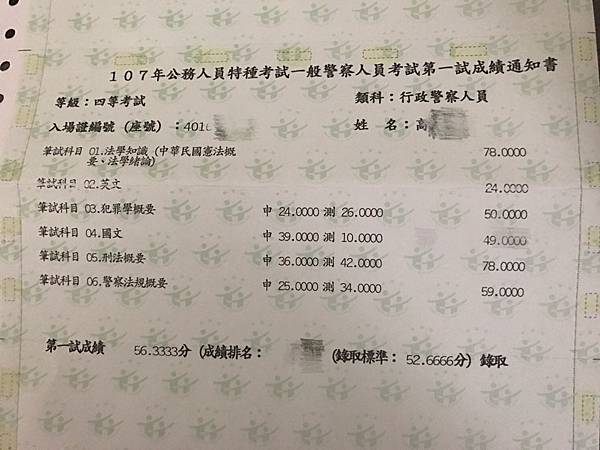 107年公務人員特種考試一般警察人員考試第一試成績通知書
等級：四等考試 類科：行政警察人員
入場證編號（座號）：401 姓 名：高
筆試科目 01.法學知識（中華民國憲法概要、法學緒論） 78.0000
筆試科目 02.英文 24.0000
筆試科目 03.犯罪學概要 申 24.0000 測 26.0000 50.0000
筆試科目 04.國文 申 39.0000 測 10.0000 49.0000
筆試科目 05.刑法概要 申 36.0000 測 42.0000 78.0000
筆試科目 06.警察法規概要 申 25.0000 測 34.0000 59.0000
第一試成績 56.3333分（成績排名： （錄取標準： 52.6666分）錄取